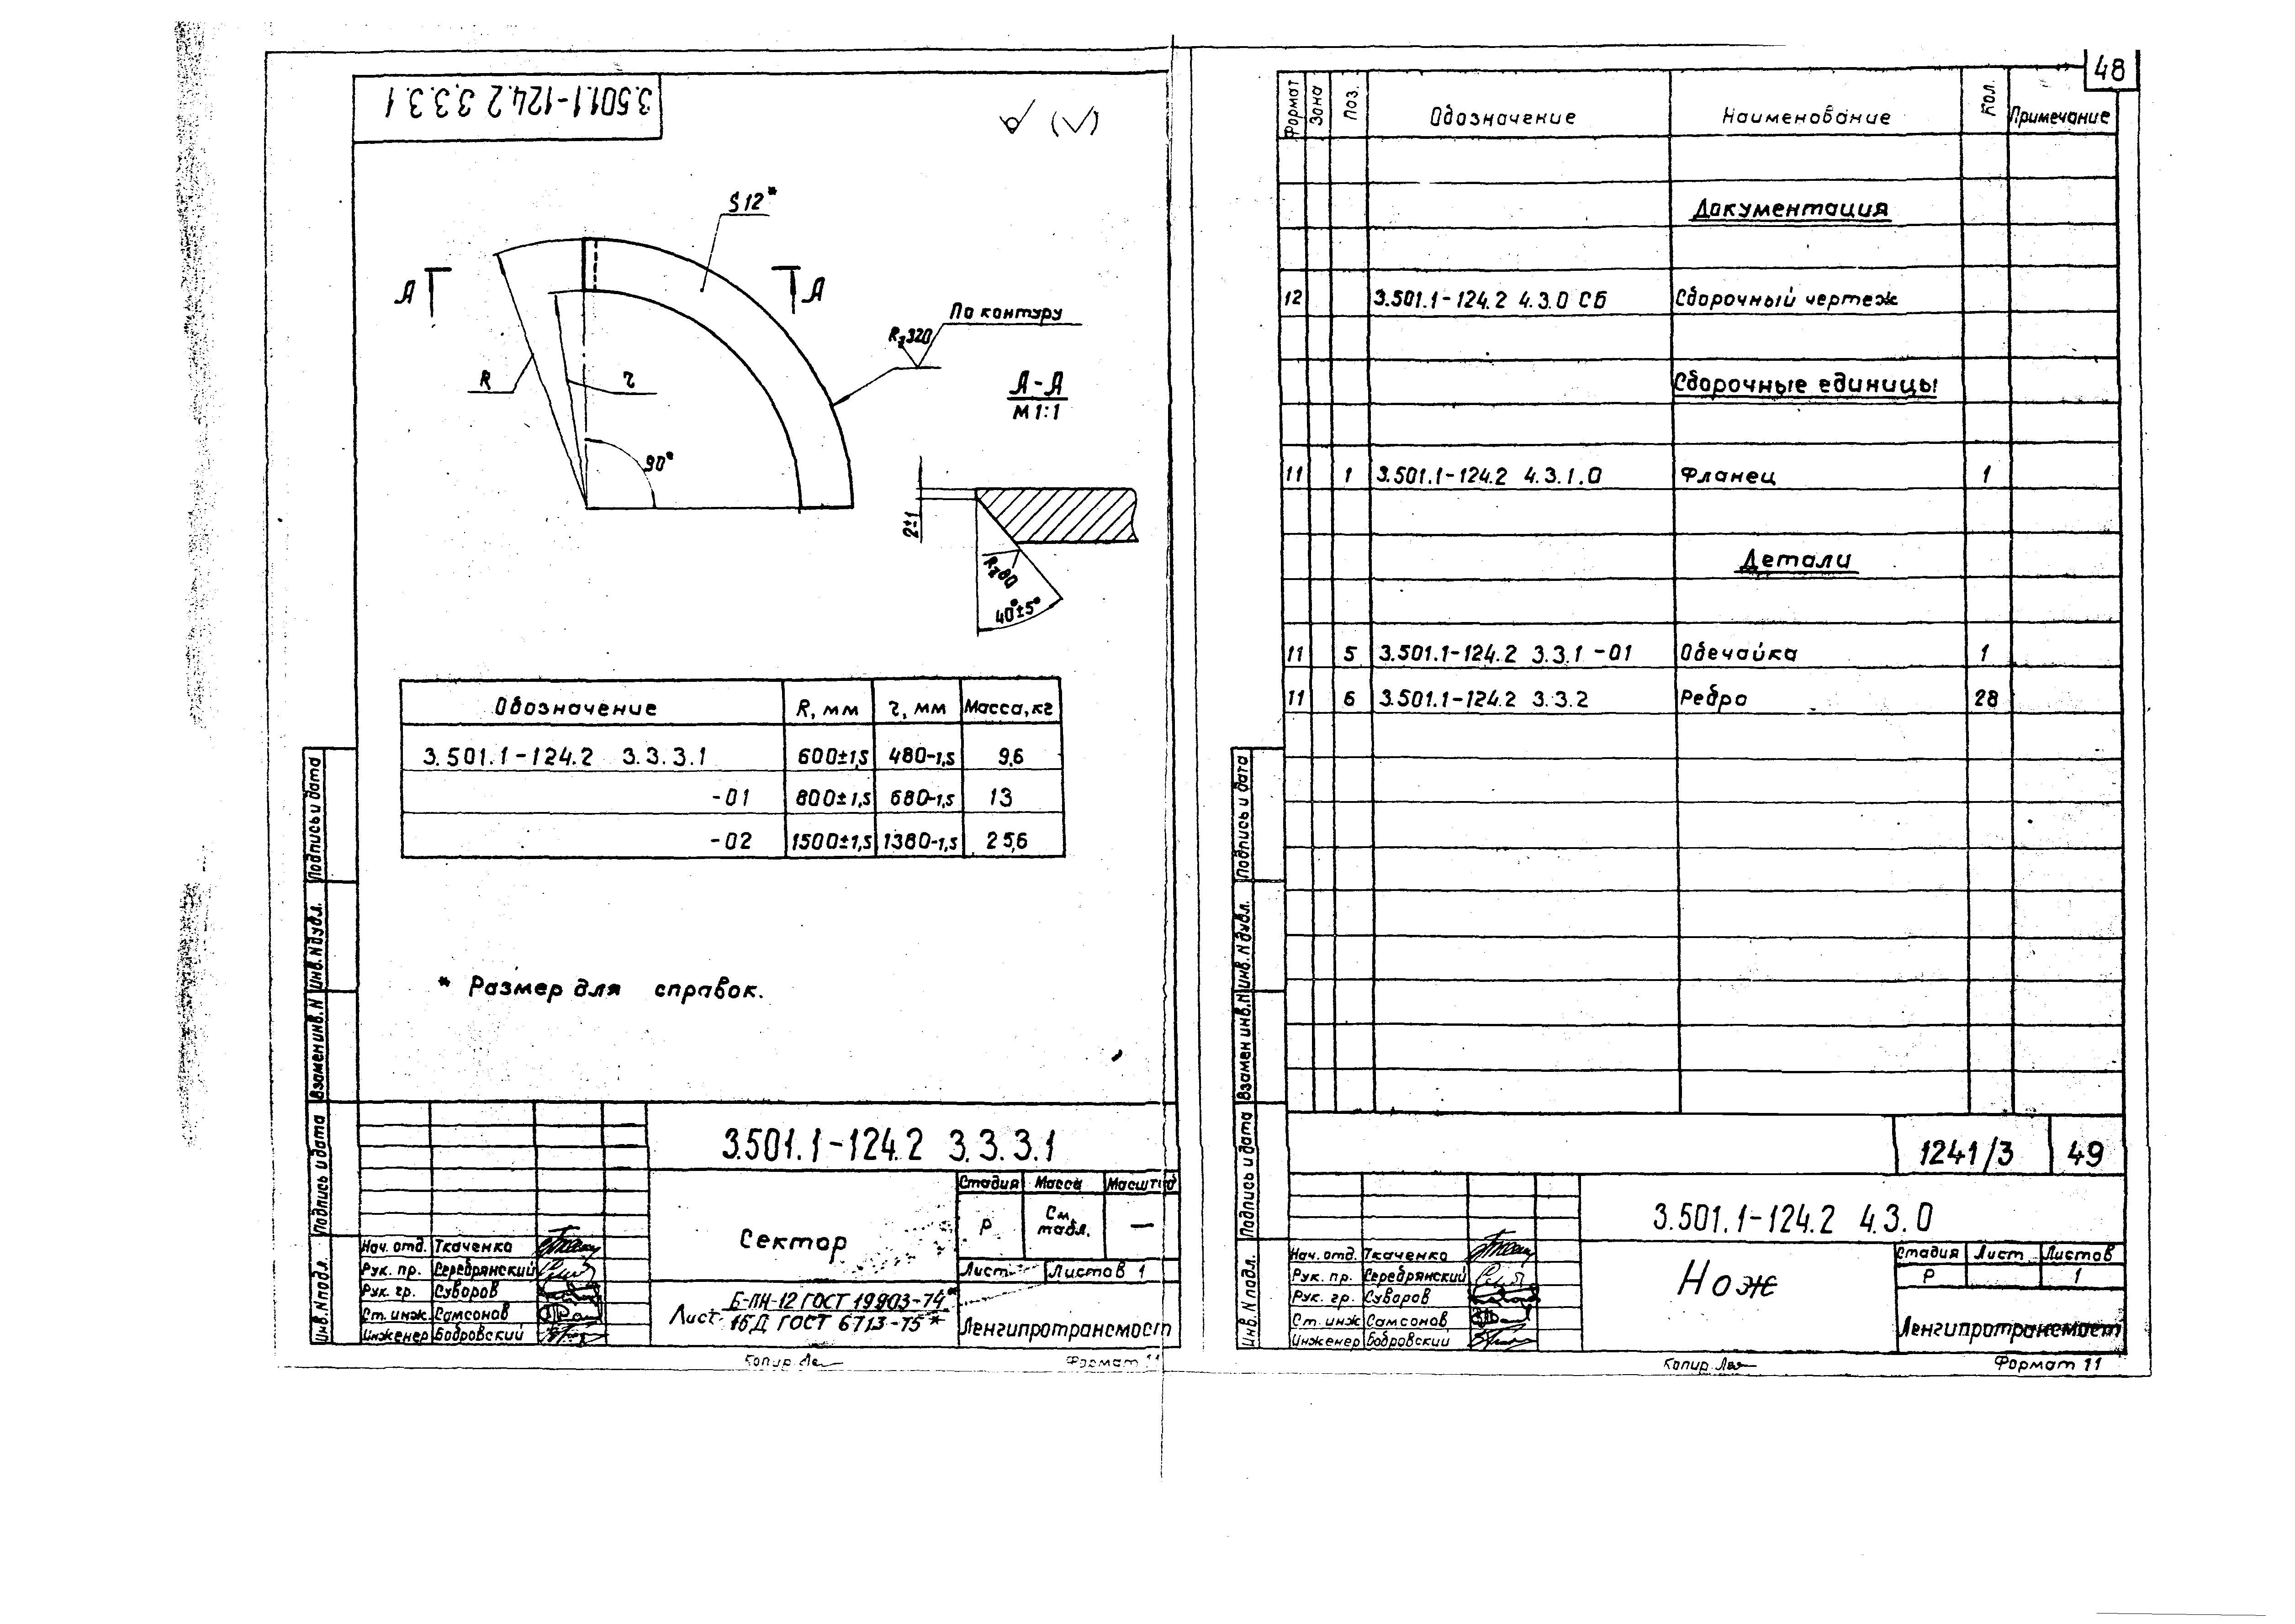 3.501.1-124.2 3.3.3.1
(√)
S12*
А А
По контуру
Rz320
R
r
90°
А-А
М1:1
2±1
Rz80
40°±5°
Обозначение R, мм r, мм Масса, кг
3.501.1-124.2 3.3.3.1 600±1,5 480-1,5 9,6
-01 800±1,5 680-1,5 13
-02 1500±1,5 1380-1,5 25,6
* Размер для справок.
Подпись и дата
Инв. N дубл.
Взамен инв. N
Подпись и дата
Инв. N подл.
3.501.1-124.2 3.3.3.1
Сектор
Стадия Масса Масштаб
Р См. табл. —
Лист Листов 1
Нач. отд. Ткаченко
Рук. пр. Серебрянский
Рук. гр. Суворов
Ст. инж. Самсонов
Инженер Бобровский
Лист Б-ПН-12 ГОСТ 19903-74*
16Д ГОСТ 6713-75*
Ленгипротрансмост
Копир.
Формат 11
48
Формат Зона Поз. Обозначение Наименование Кол. Примечание
Документация
12 3.501.1-124.2 4.3.0 СБ Сборочный чертеж
Сборочные единицы
11 1 3.501.1-124.2 4.3.1.0 Фланец 1
Детали
11 5 3.501.1-124.2 3.3.1-01 Обечайка 1
11 6 3.501.1-124.2 3.3.2 Ребро 28
Подпись и дата
Инв. N дубл.
Взамен инв. N
Подпись и дата
Инв. N подл.
1241/3 49
3.501.1-124.2 4.3.0
Нож
Стадия Лист Листов
Р 1
Нач. отд. Ткаченко
Рук. пр. Серебрянский
Рук. гр. Суворов
Ст. инж Самсонов
Инженер Бобровский
Ленгипротрансмост
Копир.
Формат 11